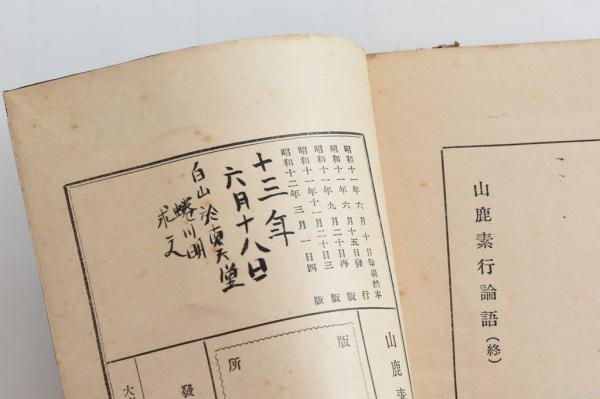 山鹿素行論語（終）
昭和十一年六月十日印刷製本
昭和十一年六月十五日發行
昭和十一年九月二十日再版
昭和十一年十一月二十日三版
昭和十二年三月一日四版
十三年
六月十八日
白山於南天堂
蜷川明
求之
山鹿素
版
所
發
大